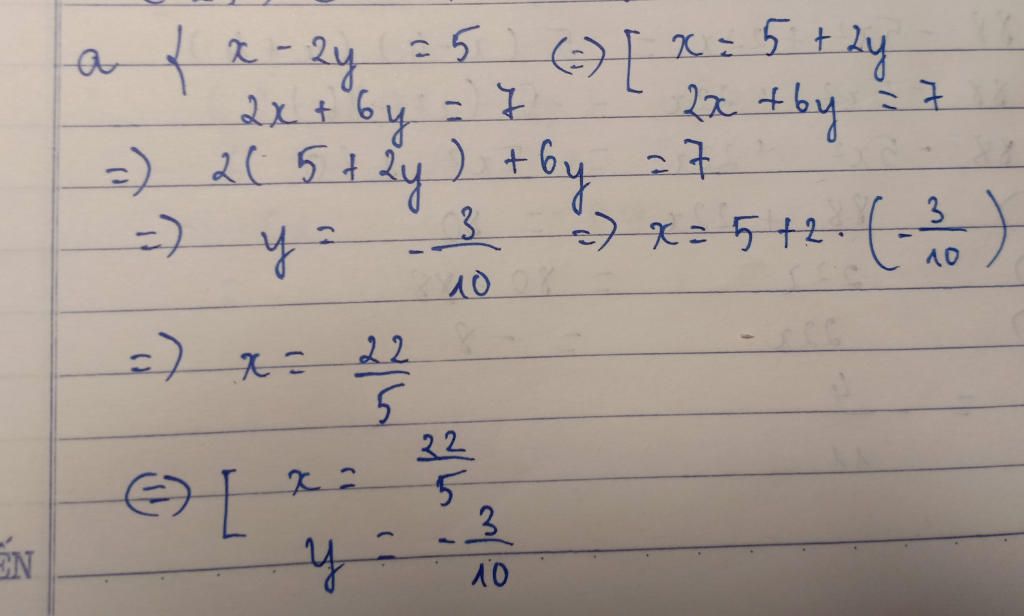 a { x - 2y = 5 (=) [ x = 5 + 2y
2x + 6y = 7 2x + 6y = 7
=) 2( 5 + 2y ) + 6y = 7
=) y = - 3/10 =) x = 5 + 2 . ( - 3/10 )
=) x = 22/5
(=) [ x = 22/5
y = - 3/10
ẾN